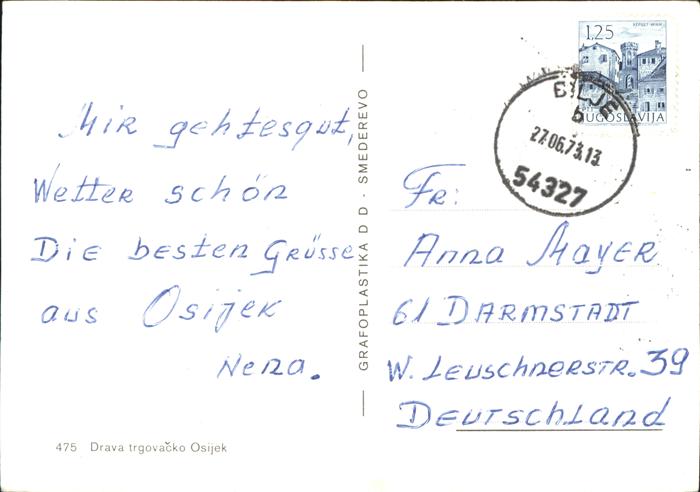 Mir gehtesgut,
Wetter schön
Die besten Grüsse
aus Osijek
Nena.
475 Drava trgovačko Osijek
GRAFOPLASTIKA D D · SMEDEREVO
1,25
JUGOSLAVIJA
BILJE
b
27.06.73.13
54327
Fr:
Anna Mayer
61 DARMSTADT
W. Leuschnerstr. 39
Deutschland